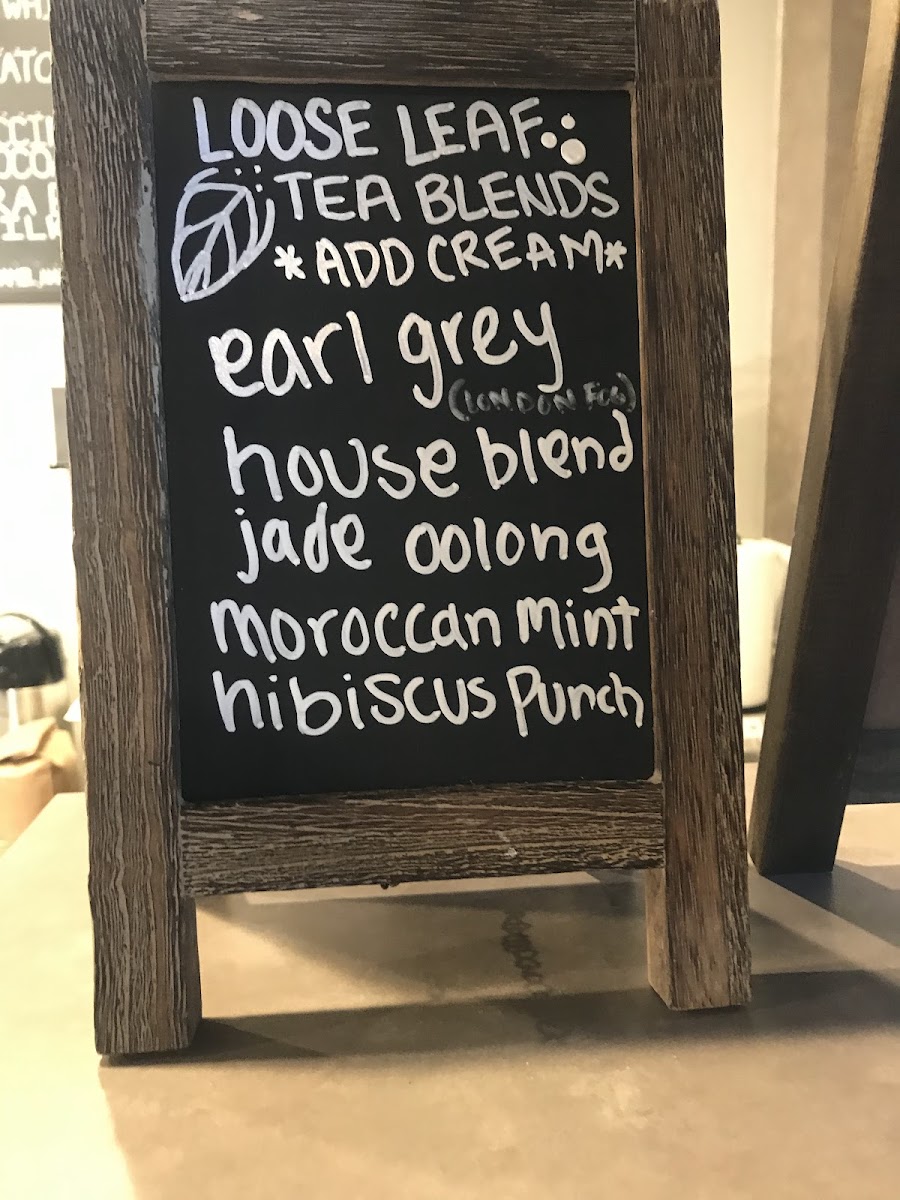 LOOSE LEAF
TEA BLENDS
*ADD CREAM*
earl grey
(LONDON FOG)
house blend
jade oolong
moroccan mint
hibiscus punch